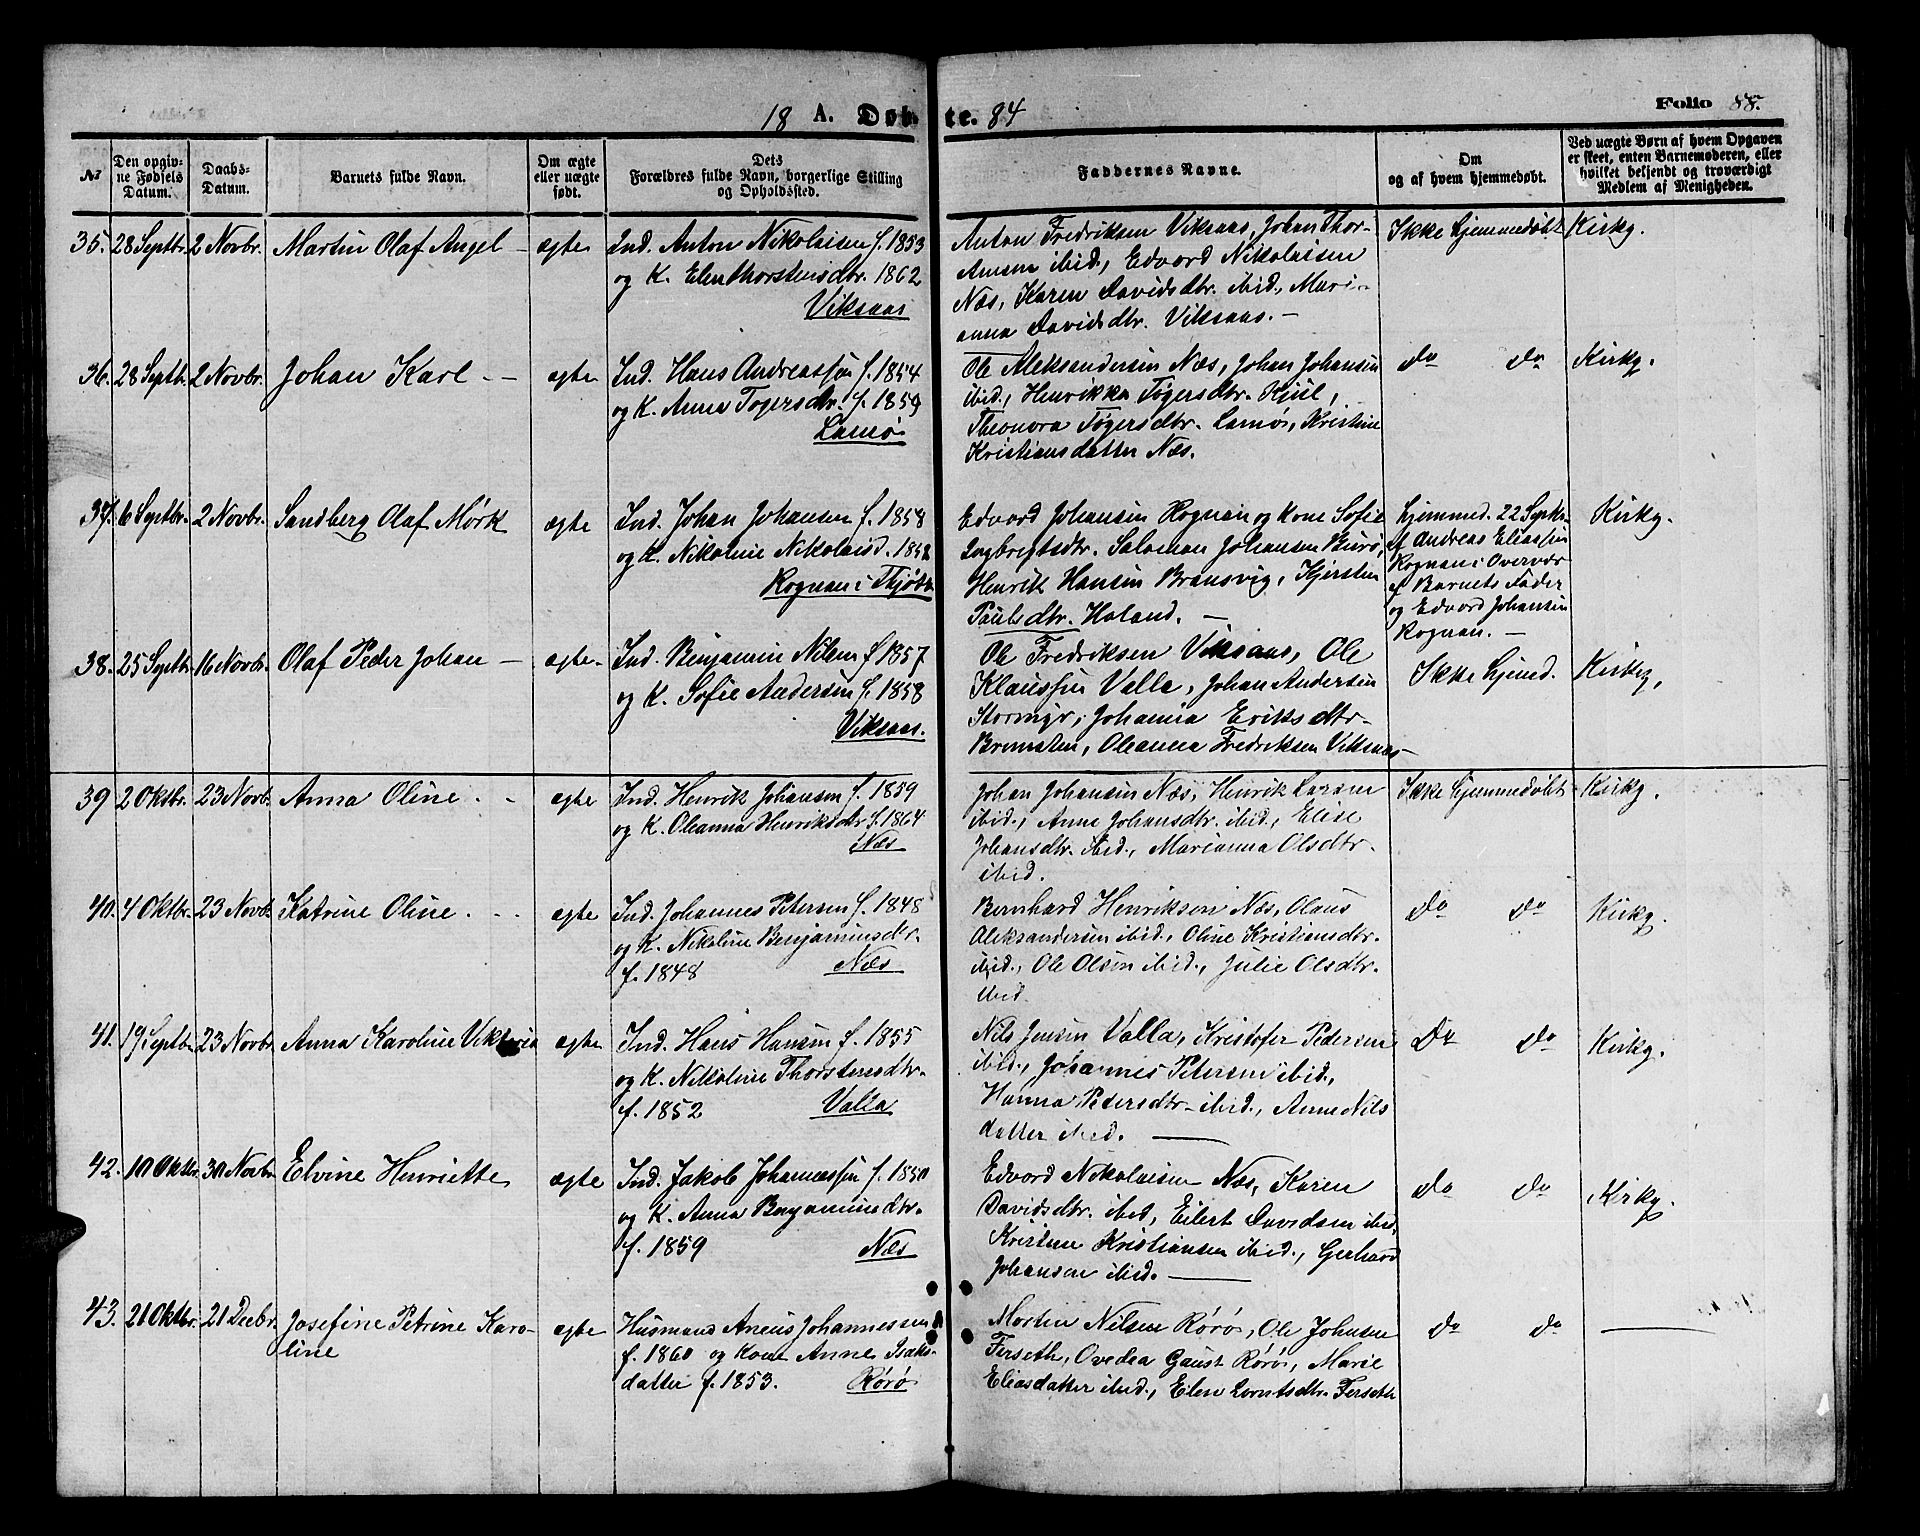 18 A. Døbte. 84
Folio 88.
No
Den opgivne Fødsels Datum.
Daabs-Datum.
Barnets fulde Navn.
Om ægte eller uægte født.
Dets Forældres fulde Navn, borgerlige Stilling og Opholdssted.
Faddernes Navne.
Om og af hvem hjemmedøbt.
Ved uægte Børn af hvem Opgaven er skeet, enten Barnemoderen, eller hvilket bekjendt og troværdigt Medlem af Menigheden.
35. 28 Septbr. 2 Novbr. Martin Olaf Angel – ægte
Ind. Anton Nikolaisen f. 1853
og K. Elen Thorstensdtr. 1862
Viksaas
Anton Fredriksen Viksaas, Johan Thor-
Amsen ibid., Edvard Nikolaisen
Næs, Karen Davidsdtr. ibid., Mari-
anna Davidsdtr. Viksaas. –
Ikke hjemmedøbt
Kirkg.
36. 28 Septbr. 2 Novbr. Johan Karl – ægte
Ind. Hans Andreassen f. 1854
og K. Anne Tøgersdtr. f. 1859
Lamø
Ole Aleksandersen Næs, Johan Johansen
ibid., Henrikka Tøgersdtr. Hjul,
Theonora Tøgersdtr. Lamø, Kristine
Kristiansdatter Næs.
do do
Kirkg.
37. 6 Septbr. 2 Novbr. Sandberg Olaf Mørk ægte
Ind. Johan Johansen f. 1858
og K. Nikoline Nikolaisd. 1858
Rognan i Thjøtta
Edvard Johansen Rognan og Kone Sofie
Ingbrigtsdtr. Salomon Johansen Burø,
Henrik Hansen Bransvig, Kjersten
Paulsdtr. Haland. –
hjemmed. 22 Septbr.
af Andreas Eliassen
Rognan i Overvær
af Barnets Fader
og Edvard Johansen
Rognan. –
Kirkg.
38. 25 Septbr. 16 Novbr. Olaf Peder Johan – ægte
Ind. Benjamin Nilsen f. 1857
og K. Sofie Andersen f. 1858
Viksaas.
Ole Fredriksen Viksaas, Ole
Klaussen Valla, Johan Andersen
Stormyr, Johanna Eriksdtr.
Bremsten, Oleanna Fredriksen Viksaas
Ikke hjemd.
Kirkg.
39 2 Oktbr. 23 Novb. Anna Oline. – ægte
Ind. Henrik Johansen f. 1859
og K. Oleanna Henriksdtr f. 1864
Næs
Johan Johansen Næs, Henrik Larsen
ibid., Anne Johansdtr. ibid., Elise
Johansdtr. ibid., Marianna Olsdtr.
ibid.
Ikke hjemmedøbt
Kirkg.
40. 4 Oktbr. 23 Novb. Katrine Oline. ægte
Ind. Johannes Petersen f. 1848
og K. Nikoline Benjaminsdtr.
f. 1848 Næs
Bernhard Henriksen Næs, Olaus
Aleksandersen ibid., Oline Kristiansdtr.
ibid., Ole Olsen ibid., Julie Olsdtr.
ibid.
Do Do
Kirkg.
41. 19 Septbr. 23 Novbr. Anna Karoline Viktoria ægte
Ind. Hans Hansen f. 1855
og K. Nikoline Thorstensdtr.
f. 1852 Valla
Nils Jensen Valla, Kristofer Pedersen
ibid., Johannes Petersen ibid.,
Hanna Pedersdtr. ibid., Anne Nils
datter ibid. –
Do Do
Kirkg.
42. 10 Oktbr. 30 Novbr. Elvine Henriette ægte
Ind. Jakob Johannessen f. 1850
og K. Anna Benjaminsdtr.
f. 1859 Næs
Edvard Nikolaisen Næs, Karen
Davidsdtr. ibid., Eilert Davidsen ibid.,
Kristine Kristiansen ibid., Gerhard
Johansen ibid. –
do do
Kirkg.
43. 21 Oktbr. 21 Decbr. Josefine Petrine Karo-
line ægte
Husmand Aneus Johannessen
f. 1860 og Kone Anne Isaks-
datter f. 1853. Rørø
Martin Nilsen Rørø, Ole Johnsen
Forseth, Ovedea Gaust Rørø, Marie
Eliasdatter ibid., Elen Lorntsdtr. Forseth
do do